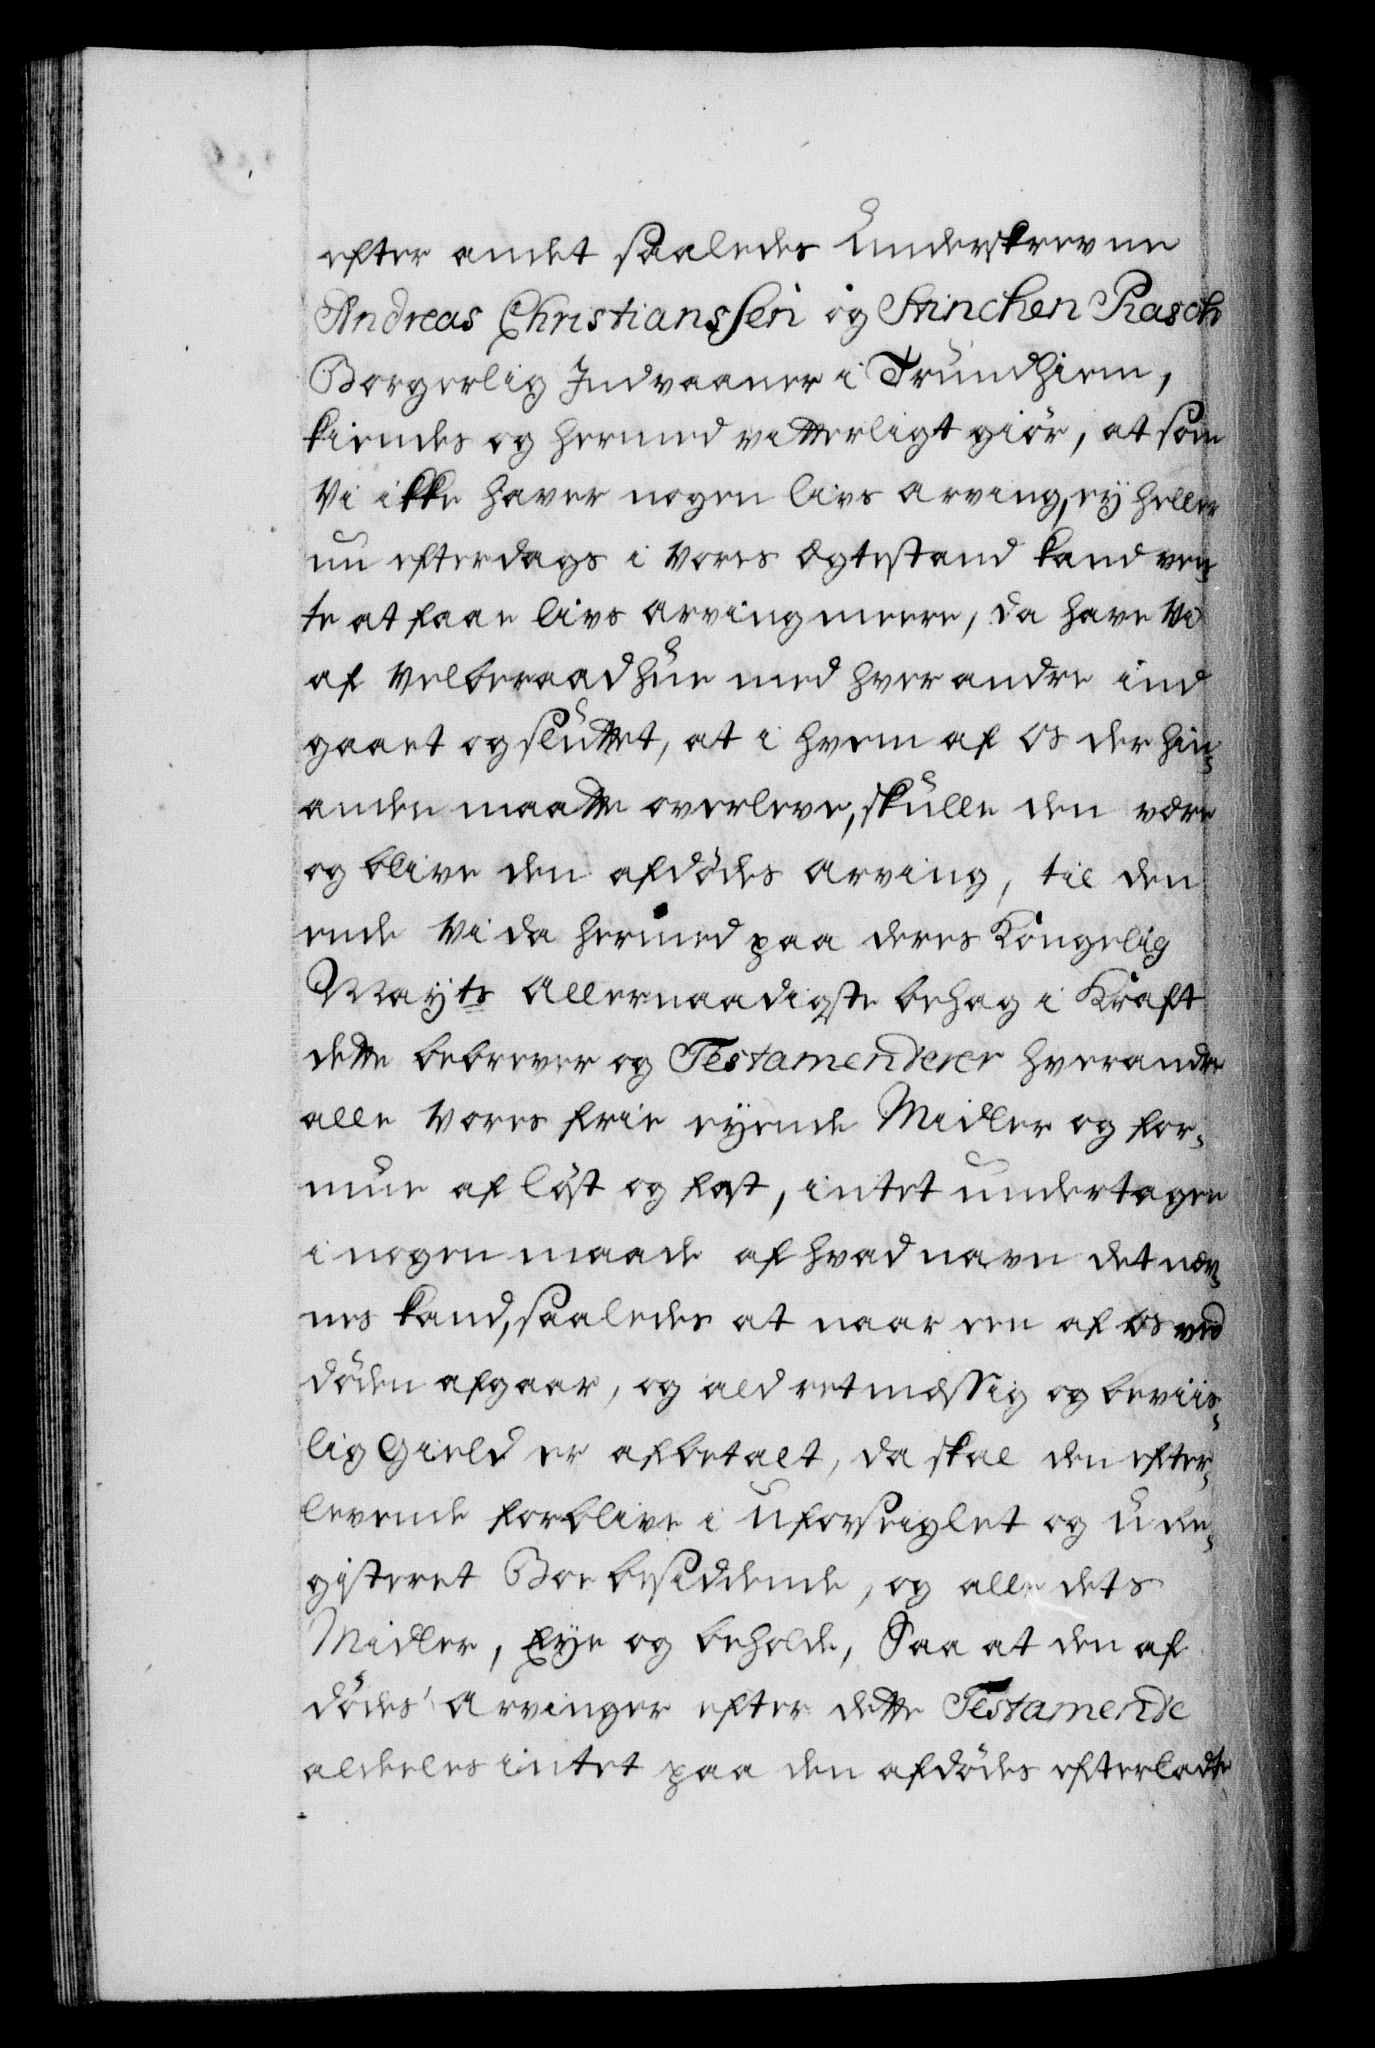 efter andet saaledes Underskrevne
Andreas Christianssen og Stinchen Rasch
Borgerlig Indvaaner i Trundhiem,
kiendes og hermed vitterligt giör, at som
Vi ikke haver nogen livs arving, eÿ heller
nu efterdags i Vores ægtestand kand ven¬
te at faae livs arving meere, da have Vi
af Velberaad hue med hver andre ind
gaaet og sluttet, at i hvem af os der hin¬
anden maatte overleve, skulle den være
og blive den afdödes arving, til den
ende Vi da hermed paa deres Kongelig
Mayts allernaadigste behag i Kraft
dette bebrever og Testamenderer hverandre
alle Vores frie eÿende Midler og for¬
mue af löst og fast, intet undertagen
i nogen maade af hvad navn det næv¬
nes kand, saaledes at naar een af os ved
döden afgaar, og ald retmæssig og beviis¬
lig Gield er afbetalt, da skal den efter¬
levende forblive i Uforseiglet og U Re¬
gisteret Boe besiddende, og alle dets
Midler, Eÿe og beholde, Saa at den af
dödes arvinger efter dette Testamende
aldeeles intet paa den afdödes efterladte